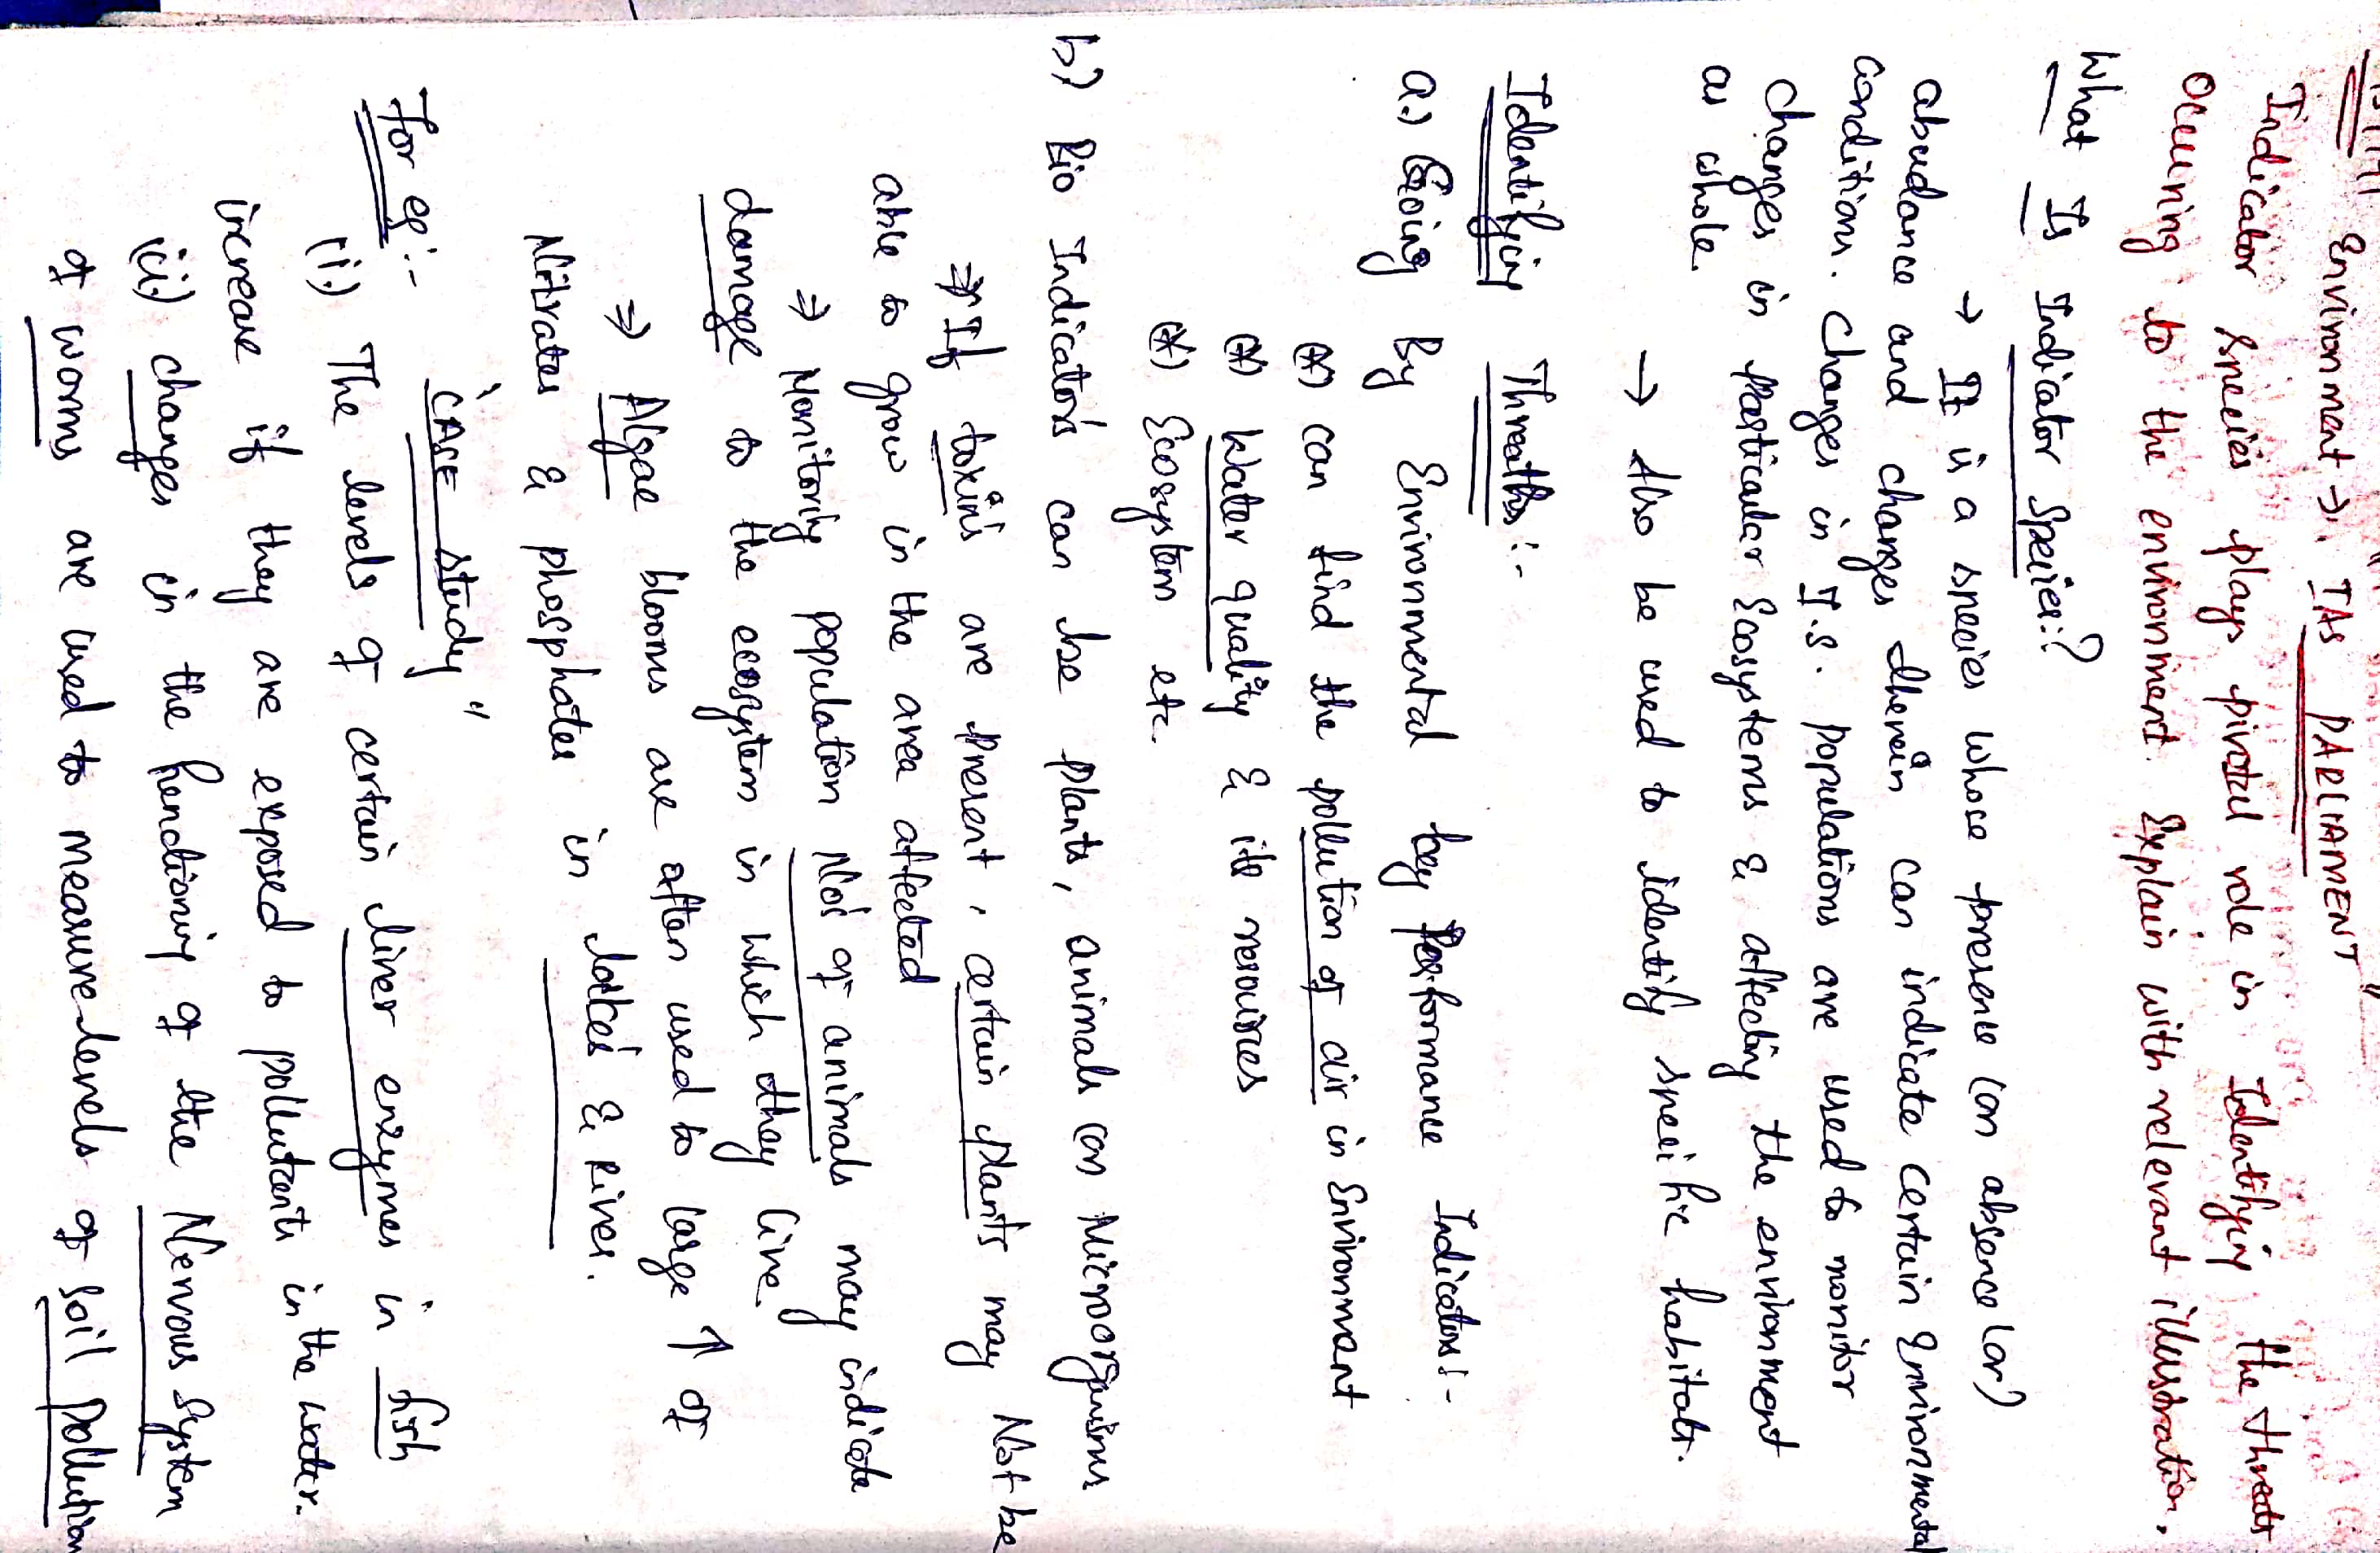 Environment →, IAS PARLIAMENT"
Indicator species plays pivotal role in Identifying the threats
occuring to the environment. Explain with relevant illustration.
What Is Indicator Species:?
→ It is a species whose presence (or absence (or)
abundance and changes therein can indicate certain Environmental
conditions. Changes in I.S. Populations are used to monitor
changes in particular Ecosystems & affecting the environment
as whole.
→ Also be used to identify specific habitats.
Identifying Threaths:-
a.) Going By Environmental key Performance Indicators:-
(*) can find the pollution of air in Environment
(*) Water quality & its resources
(*) Ecosystem etc.
b) Bio Indicators can be plants, animals (or) Microorganisms
⇒ If toxins are present, certain plants may Not be
able to grow in the area affected
⇒ Monitoring population No's of animals may indicate
damage to the ecosystem in which they live.
⇒ Algae blooms are often used to large ↑ of
Nitrates & phosphates in lakes & rivers.
"CASE study"
For eg:-
(i) The levels of certain liver enzymes in fish
increase if they are exposed to pollutants in the water.
(ii) changes in the functioning of the Nervous System
of worms are used to measure levels of Soil Pollution